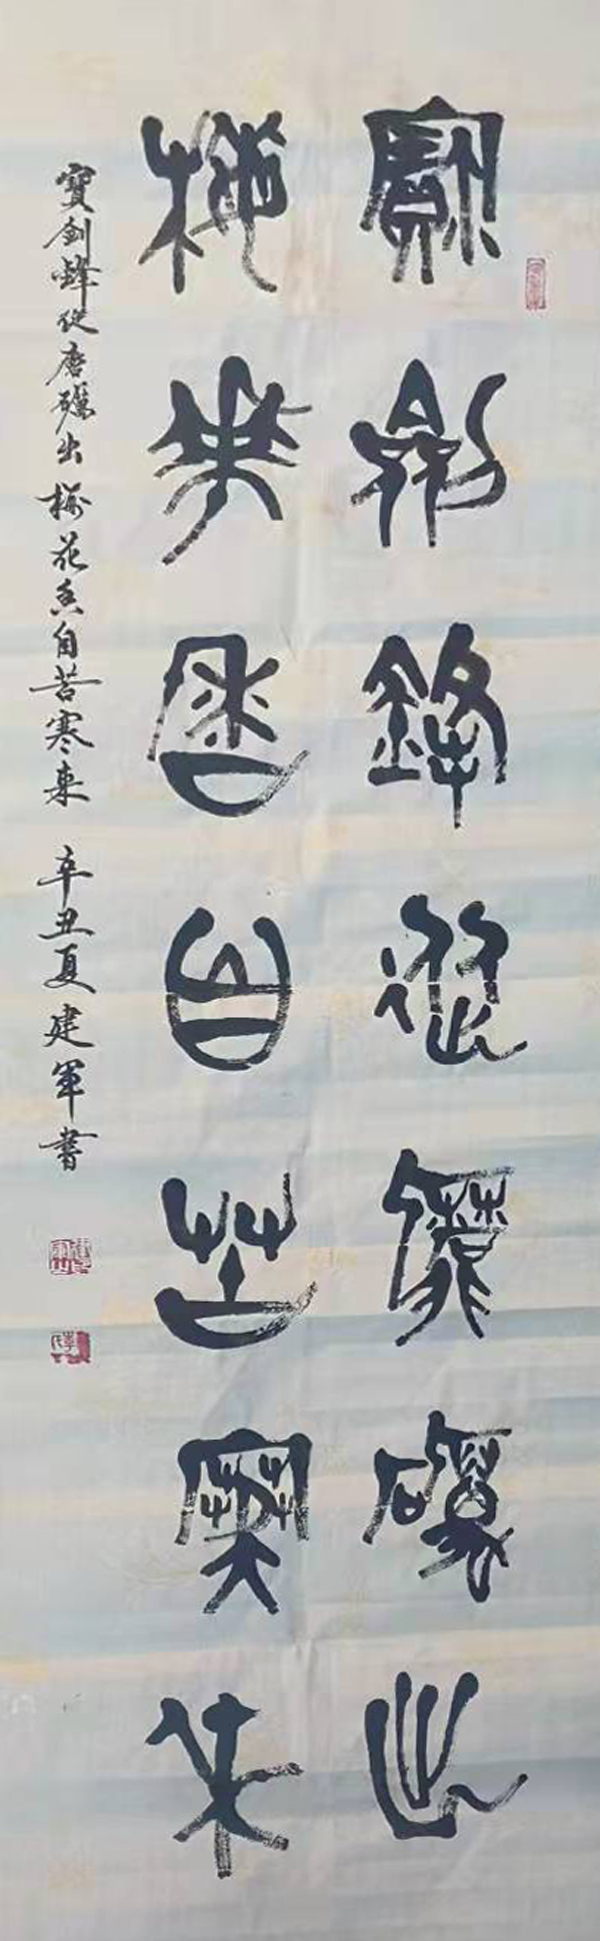 寶劍鋒從磨礪出
梅花香自苦寒來
寶劍鋒從磨礪出梅花香自苦寒來 辛丑夏建軍書